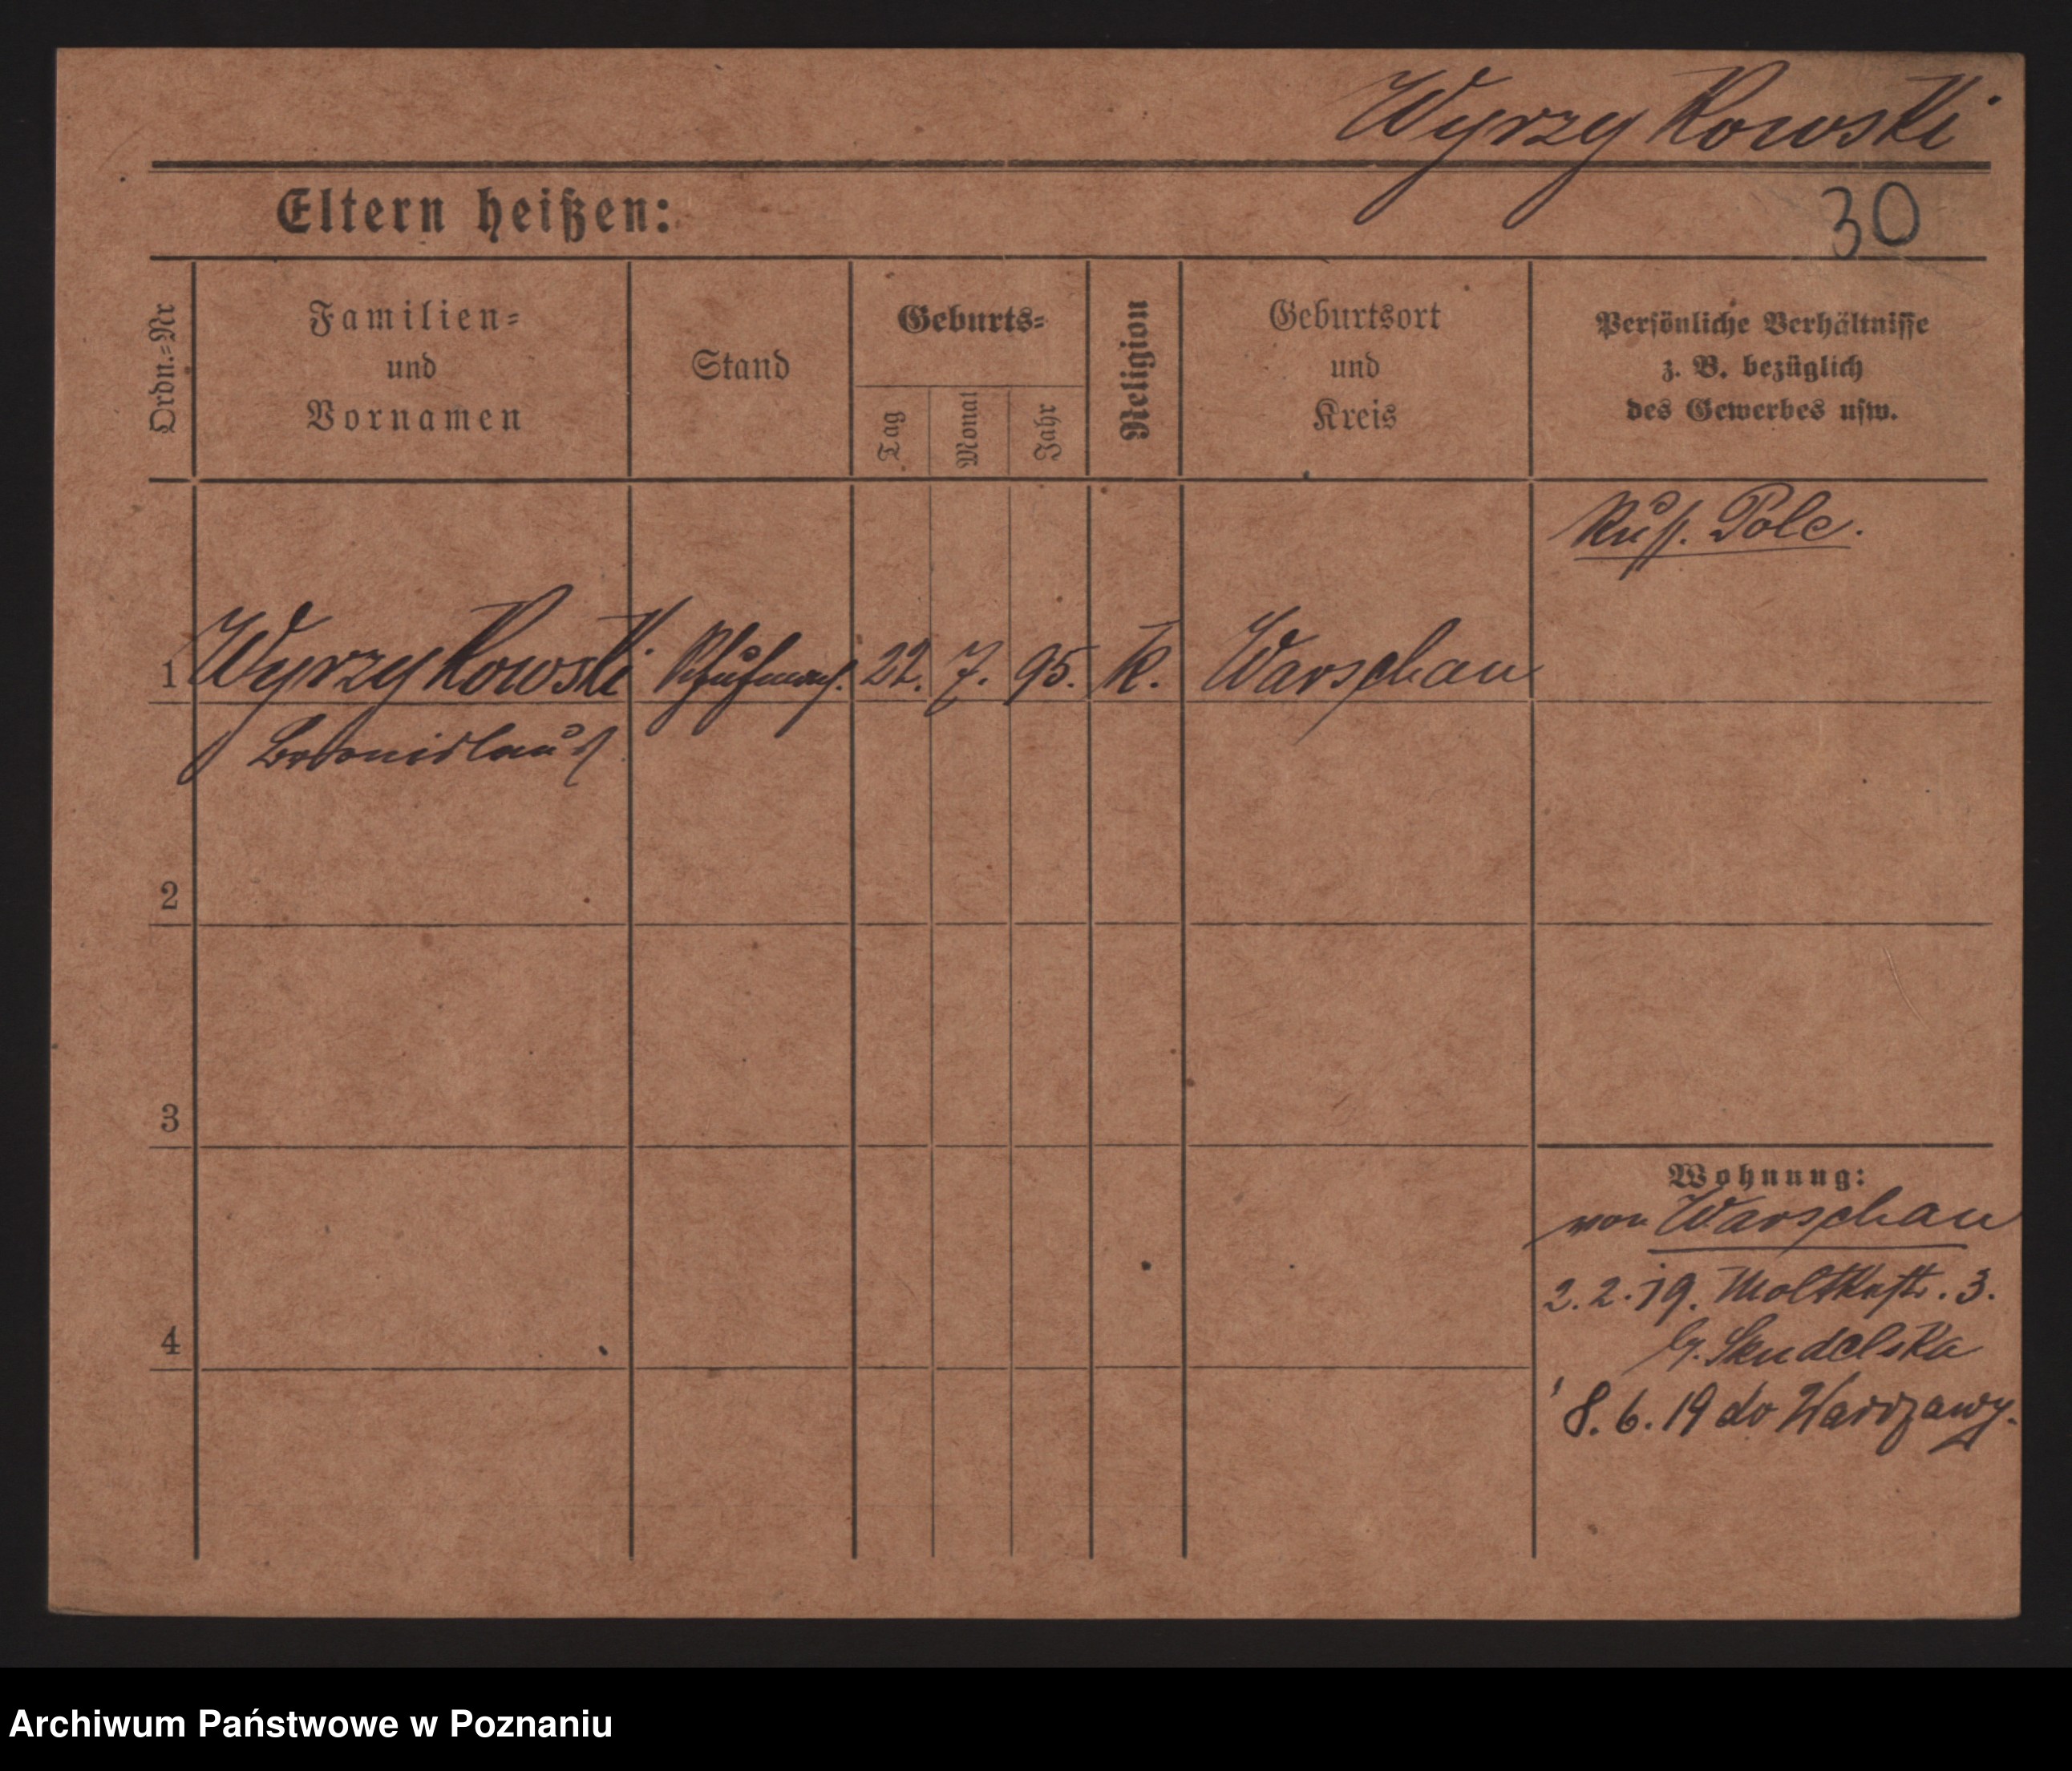 Wyrzykowski
Eltern heißen:
30
Ordn.=Nr
Familien=
und
Vornamen
Stand
Geburts=
Tag
Monat
Jahr
Religion
Geburtsort
und
Kreis
Persönliche Verhältnisse
z. B. bezüglich
des Gewerbes usw.
Russ. Pole.
1 Wyrzykowski 22. 7. 95. k. Warschau
Bronislaus
2
3
4
Wohnung:
von Warschau
2.2.19. Moltkestr. 3.
Skudelska
8.6.19 do Warszawy.
Archiwum Państwowe w Poznaniu